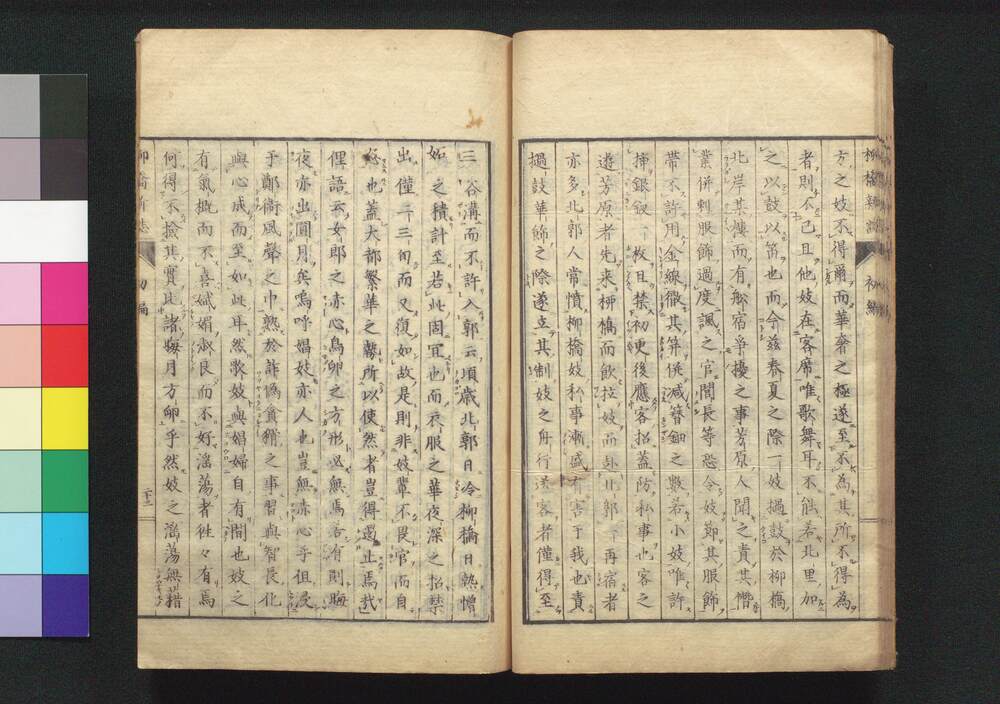 柳橋新誌 初編
方之妓不得爾而華奢之極遂至不為其所不得為
者則不已且他妓在客席唯歌舞耳不能若北里加
之以鼓以笛也而今茲春夏之際一妓撾鼓於柳橋
北岸某樓而有舩宿爭擾之事芳原人聞之責其僭
業併刺服飾過度諷之官閭長等恐令妓鄭其服飾
帶不許用金線徹其笄俟減簪鈿之數若小妓唯許
挿銀釵一枚且禁初更後應客招蓋防私事也客之
遊芳原者先来柳橋而飲拉妓而赴北郭一再宿者
亦多北郭人常憤柳橋妓私事漸盛有害于我也責
撾鼓華飾之際遂立其制妓之舟行送客者僅得至
三谷溝而不許入郭云頃歳北郭日冷柳橋日熱憎
妬之積計至若此固冝也而衣服之華夜深之招禁
出僅二三旬而又復如故是則非妓輩不畏官而自
恣也蓋大都繁華之勢所以使然者豈得遏止焉哉
俚語云女郎之赤心鳥卵之方形必無焉若有則晦
夜亦出圓月矣嗚呼娼妓亦人也豈無赤心乎但長
于鄭衛風聲之中熟於詐偽貪猾之事習與智長化
與心成而至如此耳然歌妓與娼婦自有間也妓之
有氣概而不喜媚淑良而不好滛蕩者徃々有焉
何得不撿其實比諸晦月方卵乎然妓之滛蕩無藉
柳橋新誌 初編 二十二